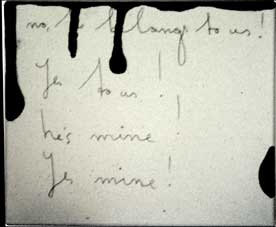 no, he belongs to us!
Yes to us!
he's mine!
Yes mine!